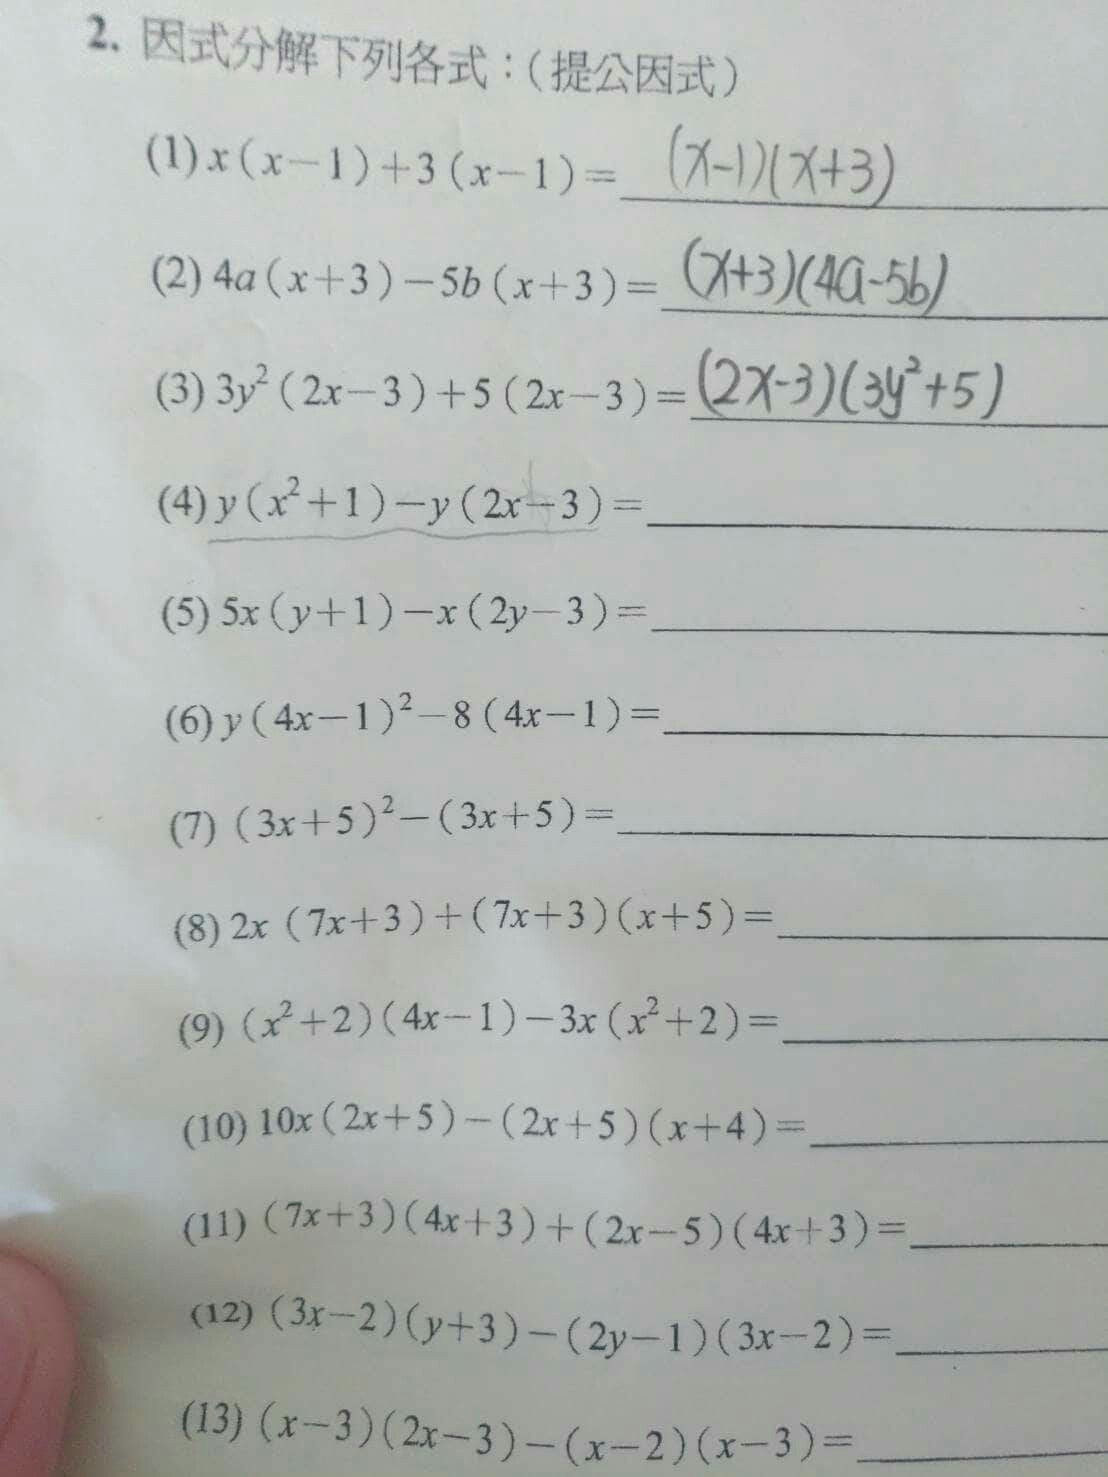 2. 因式分解下列各式：(提公因式)
(1) x(x-1)+3(x-1)= (x-1)(x+3)
(2) 4a(x+3)-5b(x+3)= (x+3)(4a-5b)
(3) 3y²(2x-3)+5(2x-3)= (2x-3)(3y²+5)
(4) y(x²+1)-y(2x-3)=
(5) 5x(y+1)-x(2y-3)=
(6) y(4x-1)²-8(4x-1)=
(7) (3x+5)²-(3x+5)=
(8) 2x(7x+3)+(7x+3)(x+5)=
(9) (x²+2)(4x-1)-3x(x²+2)=
(10) 10x(2x+5)-(2x+5)(x+4)=
(11) (7x+3)(4x+3)+(2x-5)(4x+3)=
(12) (3x-2)(y+3)-(2y-1)(3x-2)=
(13) (x-3)(2x-3)-(x-2)(x-3)=